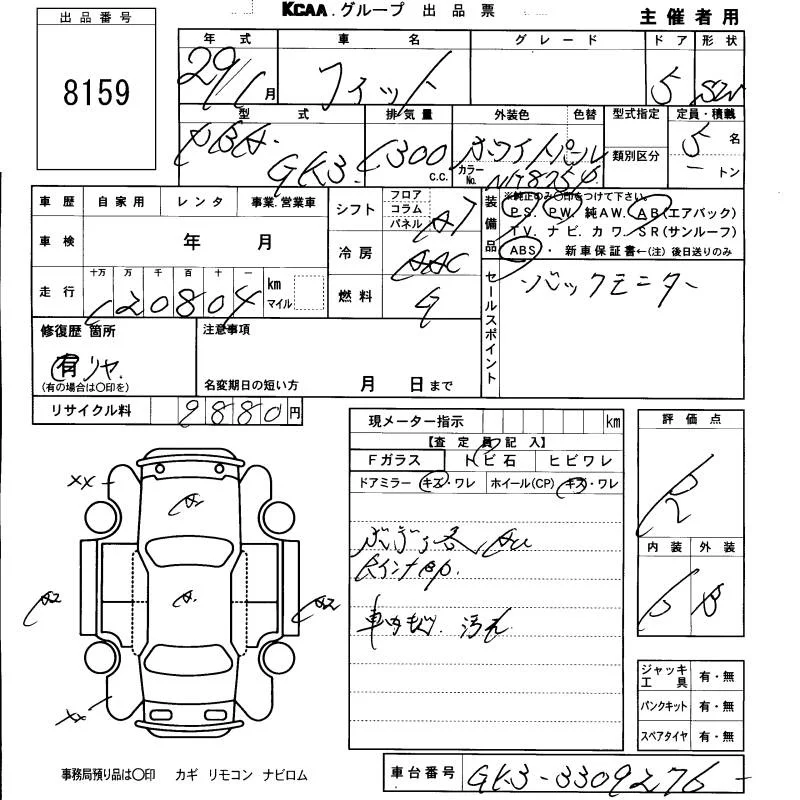 KCAA.グループ 出品票
主催者用
出品番号
8159
年式 車名 グレード ドア 形状
29/1月 フィット 5 SW
型式 排気量 外装色 色替 型式指定 定員・積載
DBA-GK3 1300 c.c. ホワイトパール カラーNo. 類別区分 5名
ートン
車歴 自家用 レンタ 事業.営業車
シフト フロア コラム パネル AT
装備品 ※純正のみ○印をつけて下さい。
P.S. PW. 純AW. AB(エアバック)
T.V. ナビ. カワ. SR(サンルーフ)
ABS・新車保証書←(注)後日送りのみ
車検 年 月
冷房 AAC
走行 十万 万 千 百 十 一
120804 km マイル
燃料 G
セールスポイント
バックモニター
修復歴 箇所
有 リヤ.
(有の場合は○印を)
注意事項
名変期日の短い方 月 日まで
リサイクル料 9880円
現メーター指示 km
【査定員記入】
Fガラス トビ石 ヒビワレ
ドアミラー キズ・ワレ ホイール(CP) キズ・ワレ
AU
P.
車内 汚れ
評価点
内装 外装
B
XX
A1
A2
A2
XX
ジャッキ工具 有・無
パンクキット 有・無
スペアタイヤ 有・無
事務局預り品は○印 カギ リモコン ナビロム
車台番号 GK3-3309276-